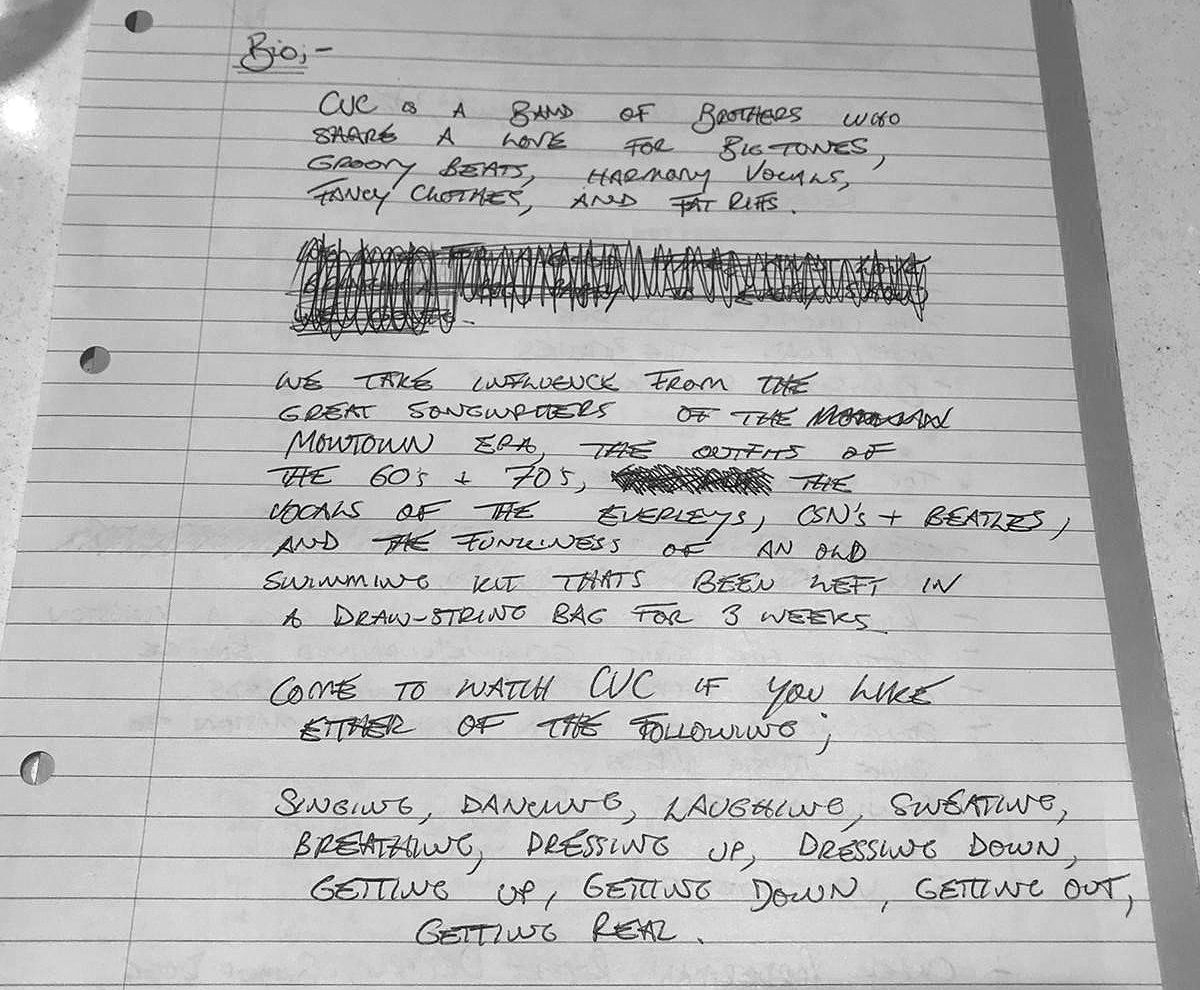 Bio;-
CVC is A BAND OF BROTHERS WHO
SHARE A LOVE FOR BIG TONES,
GROOVY BEATS, HARMONY VOCALS,
FANCY CLOTHES, AND FAT RIFFS.
WE TAKE INFLUENCE FROM THE
GREAT SONGWRITERS OF THE
MOWTOWN ERA, THE OUTFITS OF
THE 60's + 70's, THE
VOCALS OF THE EVERLEYS, CSN's + BEATLES,
AND THE FUNKINESS OF AN OLD
SWIMMING KIT THATS BEEN LEFT IN
A DRAW-STRING BAG FOR 3 WEEKS
COME TO WATCH CVC IF YOU LIKE
EITHER OF THE FOLLOWING;
SINGING, DANCING, LAUGHING, SWEATING,
BREATHING, DRESSING UP, DRESSING DOWN,
GETTING UP, GETTING DOWN, GETTING OUT,
GETTING REAL.